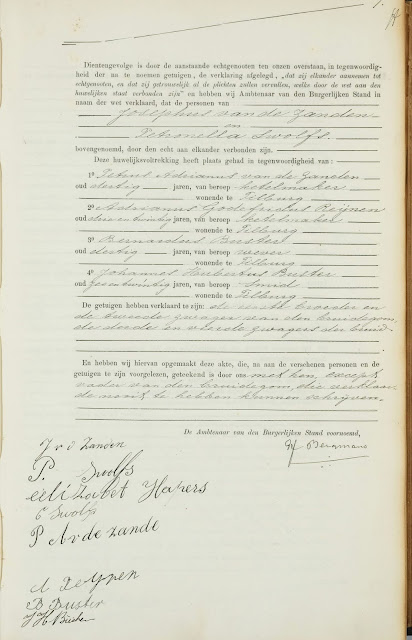 Dientengevolge is door de aanstaande echtgenooten ten onzen overstaan, in tegenwoordig-
heid der na te noemen getuigen, de verklaring afgelegd, „dat zij elkander aannemen tot
echtgenooten, en dat zij getrouwelijk al de plichten zullen vervullen, welke door de wet aan den
huwelijken staat verbonden zijn” en hebben wij Ambtenaar van den Burgerlijken Stand in
naam der wet verklaard, dat de personen van
Josephus van de Zanden
en
Petronella Swolfs.
bovengenoemd, door den echt aan elkander verbonden zijn.
Deze huwelijksvoltrekking heeft plaats gehad in tegenwoordigheid van:
1º Petrus Adrianus van de Zanden
oud dertig jaren, van beroep ketelmaker
wonende te Tilburg
2º Adrianus Godefridus
oud jaren, van beroep ketelmaker
wonende te Tilburg
3º Bernardus Buster
oud dertig jaren, van beroep wever
wonende te Tilburg
4º Johannes Huibertus Buster
oud jaren, van beroep smid
wonende te Tilburg
De getuigen hebben verklaard te zijn: de eerste broeder en
de tweede zwager van den bruidegom,
de derde en vierde zwagers der bruid
En hebben wij hiervan opgemaakt deze akte, die, na aan de verschenen personen en de
getuigen te zijn voorgelezen, geteekend is door ons met hen, except
vader van den bruidegom, die verklaar
de nooit te hebben kunnen schrijven.
De Ambtenaar van den Burgerlijken Stand voornoemd,
Bergmans
J v d Zanden
P. Swolfs
Elizabet Havers
Swolfs
P A v de zande
A
B Buster
J H Buster